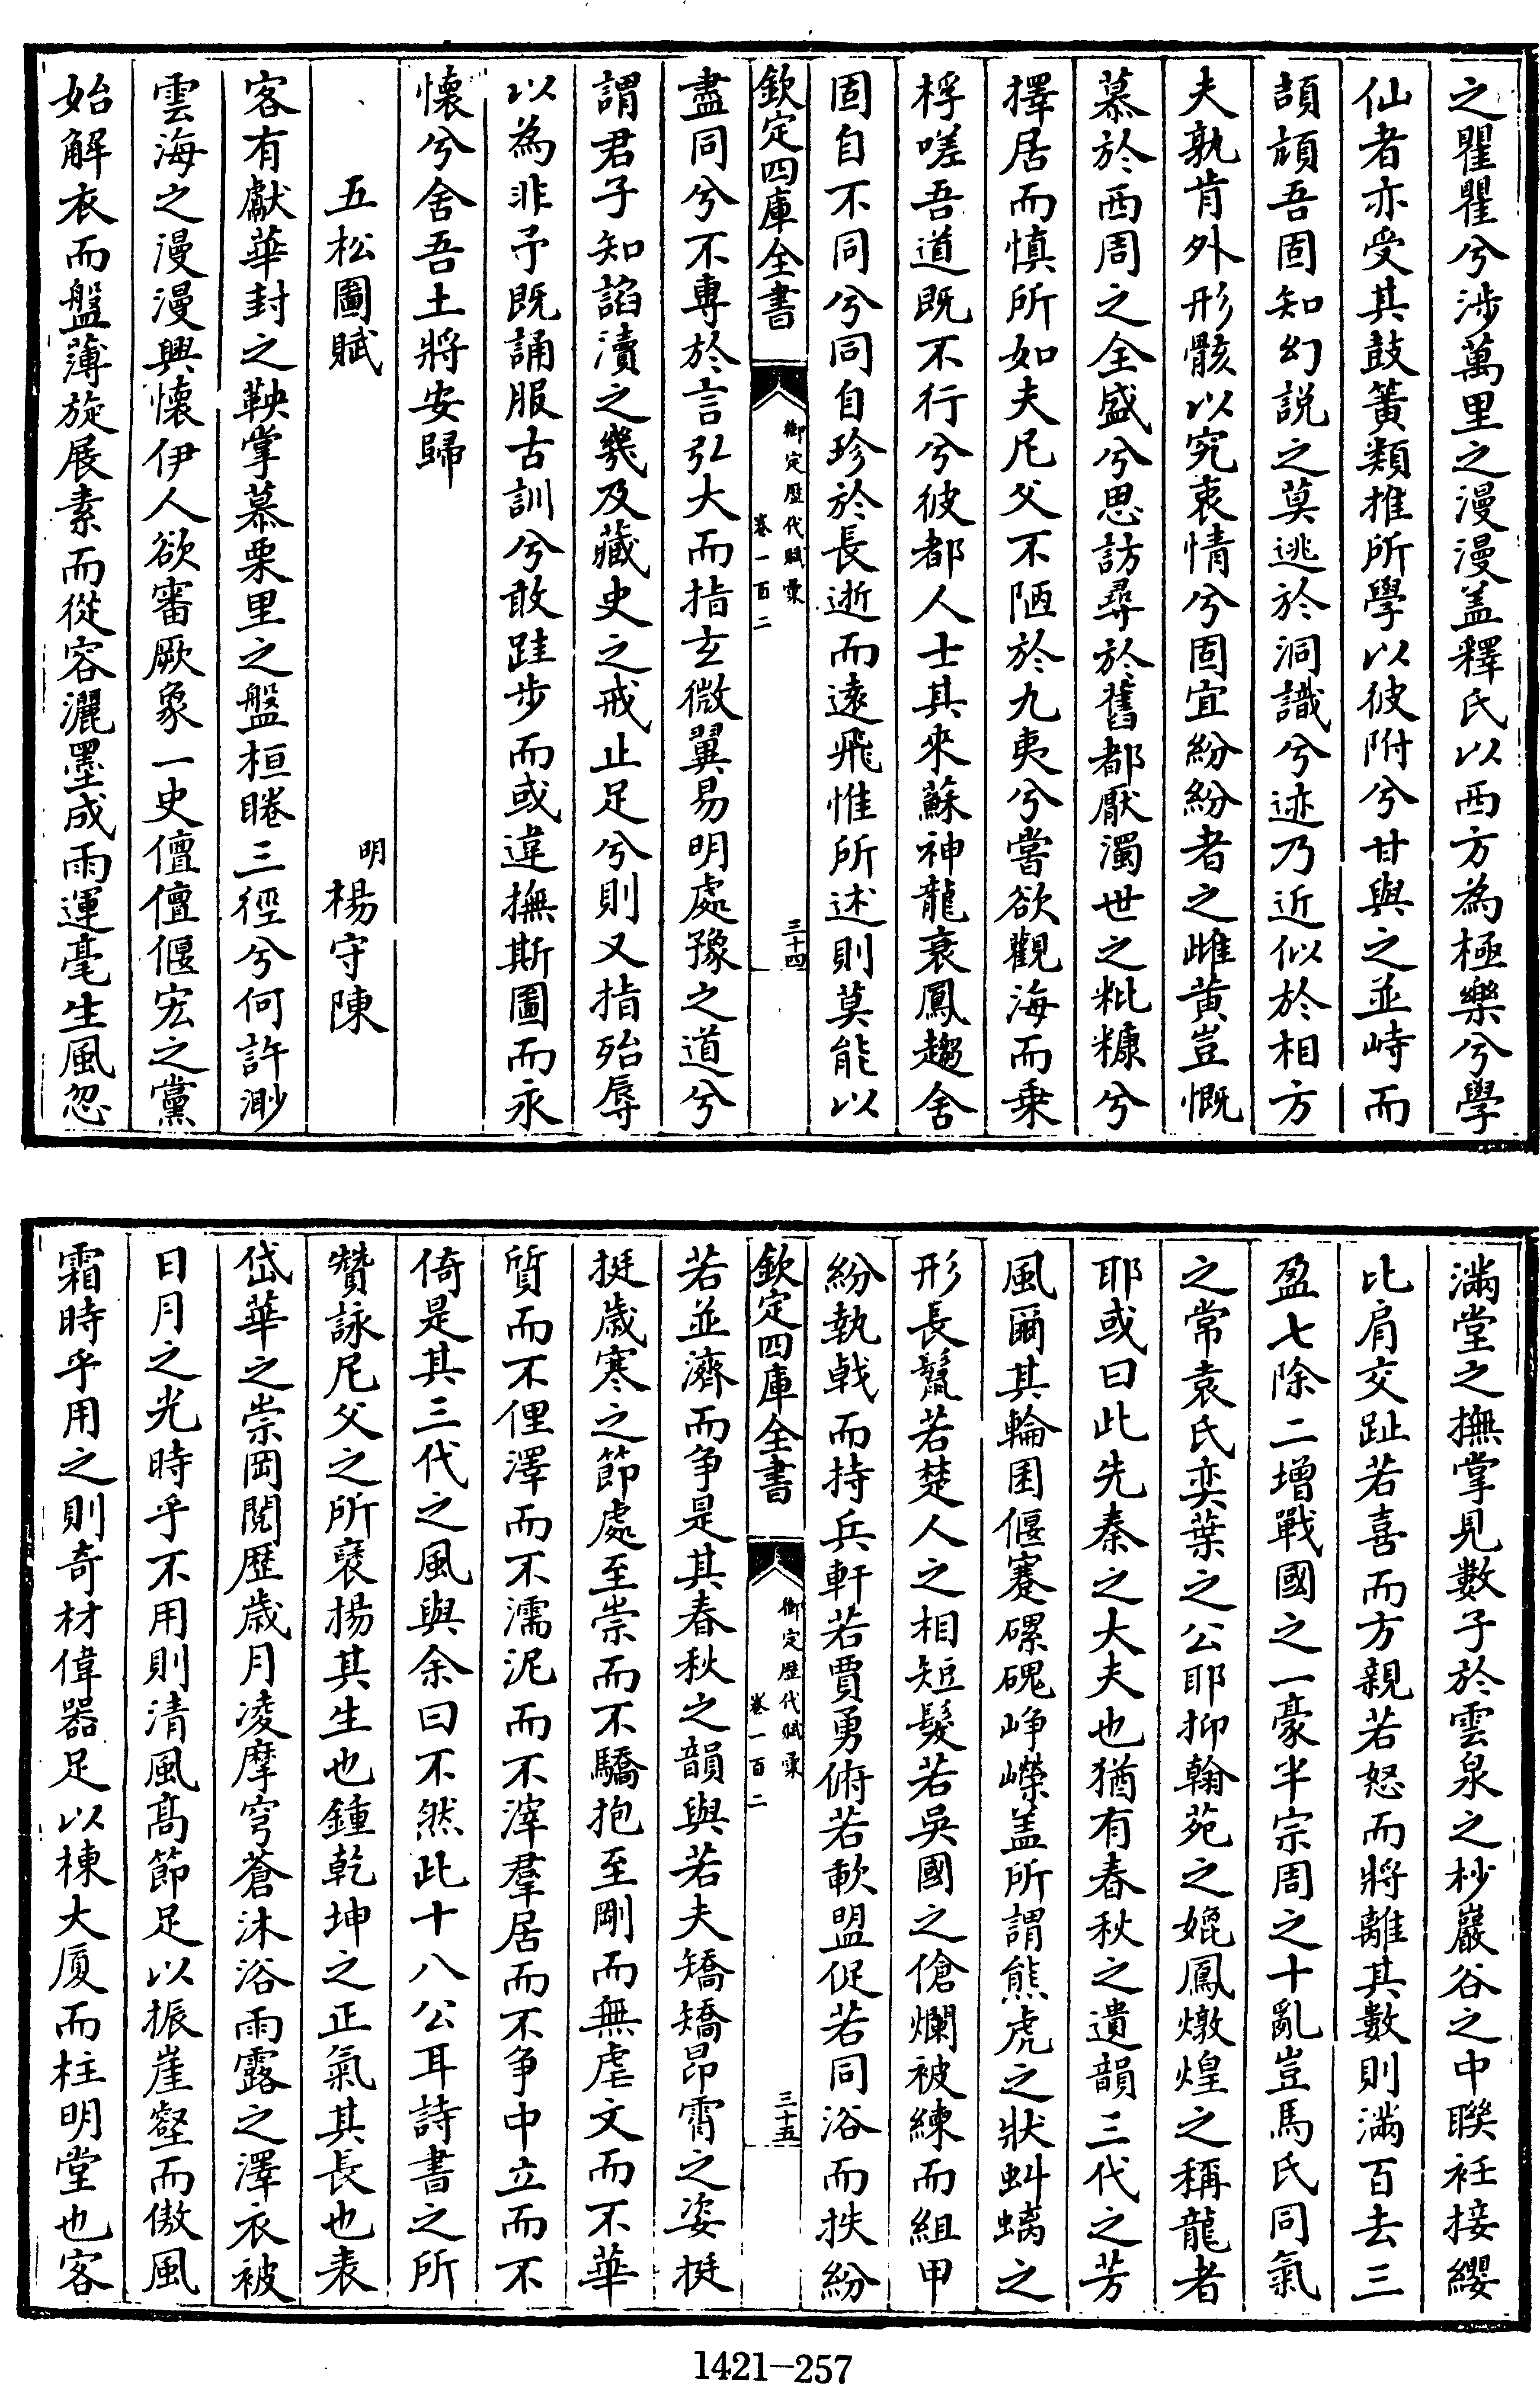 之瞿瞿兮涉萬里之漫漫盖釋氏以西方為極樂兮學
仙者亦受其鼓簧類推所學以彼附兮甘與之並峙而
頡頏吾固知幻説之莫逃於洞識兮迹乃近似於相方
夫孰肯外形骸以究衷情兮固宜紛紛者之雌黄豈慨
慕於西周之全盛兮思訪尋於舊都厭濁世之粃糠兮
擇居而慎所如夫尼父不陋於九夷兮嘗欲觀海而乗
桴嗟吾道既不行兮彼都人士其來蘇神龍衰鳳趨舍
固自不同兮同自珍於長逝而遠飛惟所述則莫能以
欽定四庫全書
御定歴代賦彚
卷一百二
三十四
盡同兮不專於言弘大而指玄微翼易明處豫之道兮
謂君子知謟瀆之幾及藏史之戒止足兮則又指殆辱
以為非予既誦服古訓兮敢跬步而或違撫斯圖而永
懷兮舍吾土將安歸
五松圖賦
明楊守陳
客有獻華封之鞅掌慕栗里之盤桓睠三徑兮何許渺
雲海之漫漫興懷伊人欲審厥象一史儃儃偃宏之黨
始解衣而盤薄旋展素而從容灑墨成雨運毫生風忽
滿堂之撫掌見數子於雲泉之杪巖谷之中聨衽接纓
比肩交趾若喜而方親若怒而將離其數則滿百去三
盈七除二增戰國之一豪半宗周之十亂豈馬氏同氣
之常袁氏奕葉之公耶抑翰苑之媲鳳燉煌之稱龍者
耶或曰此先秦之大夫也猶有春秋之遺韻三代之芳
風爾其輪囷偃蹇磥磈峥嶸盖所謂熊虎之狀虯螭之
形長鬛若楚人之相短髮若吳國之傖爛被練而組甲
紛執戟而持兵軒若賈勇俯若軟盟促若同浴而抶紛
欽定四庫全書
御定歴代賦彚
卷一百二
三十五
若並濟而争是其春秋之韻與若夫矯矯昂霄之姿挺
挺歲寒之節處至崇而不驕抱至剛而無虐文而不華
質而不俚澤而不濡泥而不滓羣居而不争中立而不
倚是其三代之風與余曰不然此十八公耳詩書之所
贊詠尼父之所襃揚其生也鍾乾坤之正氣其長也表
岱華之崇岡閲歴歲月凌摩穹蒼沐浴雨露之澤衣被
日月之光時乎不用則清風髙節足以振崖壑而傲風
霜時乎用之則奇材偉器足以棟大厦而柱明堂也客
1421—257